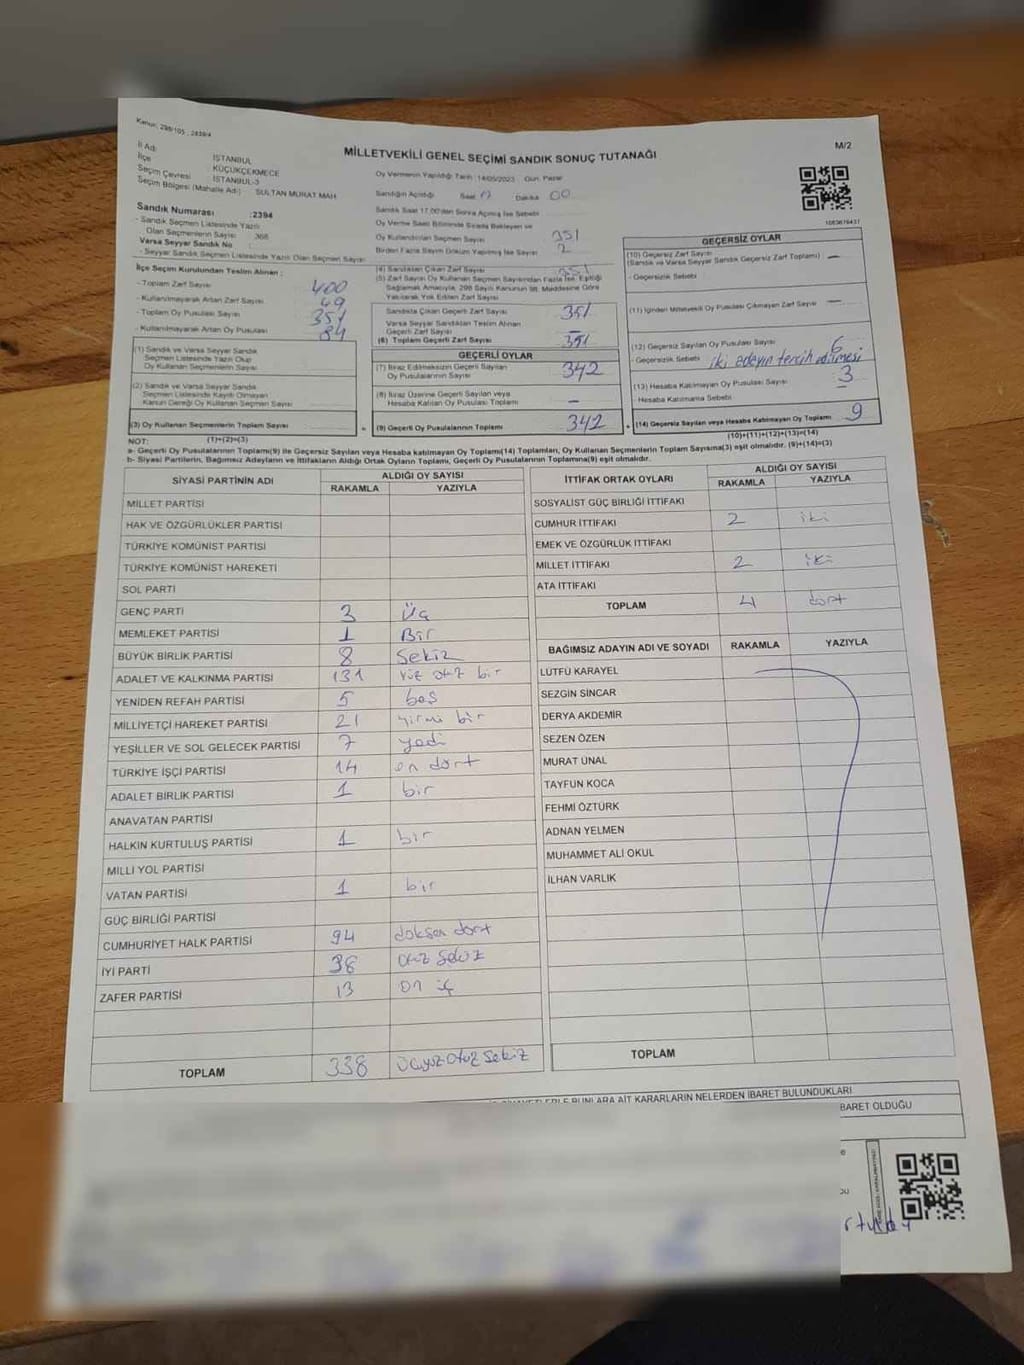 Kanun: 298/105, 2839/4
MİLLETVEKİLİ GENEL SEÇİMİ SANDIK SONUÇ TUTANAĞI
M/2
İl Adı İSTANBUL
İlçe KÜÇÜKÇEKMECE
Seçim Çevresi İSTANBUL-3
Seçim Bölgesi (Mahalle Adı) SULTAN MURAT MAH.
Sandık Numarası :2394
- Sandık Seçmen Listesinde Yazılı
Olan Seçmenlerin Sayısı : 368
Varsa Seyyar Sandık No :
- Seyyar Sandık Seçmen Listesinde Yazılı Olan Seçmen Sayısı
İlçe Seçim Kurulundan Teslim Alınan ;
- Toplam Zarf Sayısı 400
- Kullanılmayarak Artan Zarf Sayısı 49
- Toplam Oy Pusulası Sayısı 351
- Kullanılmayarak Artan Oy Pusulası 84
(1) Sandık ve Varsa Seyyar Sandık
Seçmen Listesinde Yazılı Olup
Oy Kullanan Seçmenlerin Sayısı
(2) Sandık ve Varsa Seyyar Sandık
Seçmen Listesinde Kayıtlı Olmayan
Kanun Gereği Oy Kullanan Seçmen Sayısı
(3) Oy Kullanan Seçmenlerin Toplam Sayısı
(1)+(2)=(3)
Oy Vermenin Yapıldığı Tarih : 14/05/2023 Gün: Pazar
Sandığın Açıldığı Saat 17 Dakika 00
Sandık Saat 17.00'dan Sonra Açılmış İse Sebebi
Oy Verme Saati Bitiminde Sırada Bekleyen ve
Oy Kullandırılan Seçmen Sayısı 351
Birden Fazla Sayım Döküm Yapılmış İse Sayısı 2
(4) Sandıktan Çıkan Zarf Sayısı 351
(5) Zarf Sayısı Oy Kullanan Seçmen Sayısından Fazla İse, Eşitliği
Sağlamak Amacıyla, 298 Sayılı Kanunun 98. Maddesine Göre
Yakılarak Yok Edilen Zarf Sayısı
Sandıkta Çıkan Geçerli Zarf Sayısı 351
Varsa Seyyar Sandıktan Teslim Alınan
Geçerli Zarf Sayısı –
(6) Toplam Geçerli Zarf Sayısı 351
GEÇERLİ OYLAR
(7) İtiraz Edilmeksizin Geçerli Sayılan
Oy Pusulalarının Sayısı 342
(8) İtiraz Üzerine Geçerli Sayılan veya
Hesaba Katılan Oy Pusulaları Toplamı –
(9) Geçerli Oy Pusulalarının Toplamı 342
1083676437
GEÇERSİZ OYLAR
(10) Geçersiz Zarf Sayısı
(Sandık ve Varsa Seyyar Sandık Geçersiz Zarf Toplamı) –
- Geçersizlik Sebebi
(11) İçinden Milletvekili Oy Pusulası Çıkmayan Zarf Sayısı –
(12) Geçersiz Sayılan Oy Pusulası Sayısı 6
- Geçersizlik Sebebi iki adayın tercih edilmesi
(13) Hesaba Katılmayan Oy Pusulası Sayısı 3
- Hesaba Katılmama Sebebi
(14) Geçersiz Sayılan veya Hesaba Katılmayan Oy Toplamı 9
(10)+(11)+(12)+(13)=(14)
NOT:
a- Geçerli Oy Pusulalarının Toplamı(9) ile Geçersiz Sayılan veya Hesaba katılmayan Oy Toplamı(14) Toplamları, Oy Kullanan Seçmenlerin Toplam Sayısına(3) eşit olmalıdır. (9)+(14)=(3)
b- Siyasi Partilerin, Bağımsız Adayların ve İttifakların Aldığı Ortak Oyların Toplamı, Geçerli Oy Pusulalarının Toplamına(9) eşit olmalıdır.
SİYASİ PARTİNİN ADI ALDIĞI OY SAYISI
RAKAMLA YAZIYLA
MİLLET PARTİSİ
HAK VE ÖZGÜRLÜKLER PARTİSİ
TÜRKİYE KOMÜNİST PARTİSİ
TÜRKİYE KOMÜNİST HAREKETİ
SOL PARTİ
GENÇ PARTİ 3 Üç
MEMLEKET PARTİSİ 1 Bir
BÜYÜK BİRLİK PARTİSİ 8 Sekiz
ADALET VE KALKINMA PARTİSİ 131 Yüz otz bir
YENİDEN REFAH PARTİSİ 5 beş
MİLLİYETÇİ HAREKET PARTİSİ 21 yirmi bir
YEŞİLLER VE SOL GELECEK PARTİSİ 7 yedi
TÜRKİYE İŞÇİ PARTİSİ 14 on dört
ADALET BİRLİK PARTİSİ 1 bir
ANAVATAN PARTİSİ
HALKIN KURTULUŞ PARTİSİ 1 bir
MİLLİ YOL PARTİSİ
VATAN PARTİSİ 1 bir
GÜÇ BİRLİĞİ PARTİSİ
CUMHURİYET HALK PARTİSİ 94 doksan dört
İYİ PARTİ 38 otuz sekiz
ZAFER PARTİSİ 13 on üç
TOPLAM 338 üçyüz otuz sekiz
İTTİFAK ORTAK OYLARI ALDIĞI OY SAYISI
RAKAMLA YAZIYLA
SOSYALİST GÜÇ BİRLİĞİ İTTİFAKI
CUMHUR İTTİFAKI 2 iki
EMEK VE ÖZGÜRLÜK İTTİFAKI
MİLLET İTTİFAKI 2 iki
ATA İTTİFAKI
TOPLAM 4 dört
BAĞIMSIZ ADAYIN ADI VE SOYADI RAKAMLA YAZIYLA
LÜTFÜ KARAYEL
SEZGİN SİNCAR
DERYA AKDEMİR
SEZEN ÖZEN
MURAT ÜNAL
TAYFUN KOCA
FEHMİ ÖZTÜRK
ADNAN YELMEN
MUHAMMET ALİ OKUL
İLHAN VARLIK
TOPLAM
BUNLARA AİT KARARLARIN NELERDEN İBARET BULUNDUKLARI
İBARET OLDUĞU